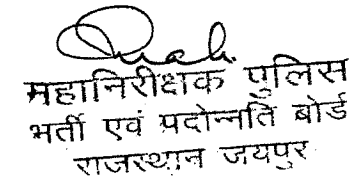 महानिरीक्षक पुलिस
भर्ती एवं पदोन्नति बोर्ड
राजस्थान जयपुर